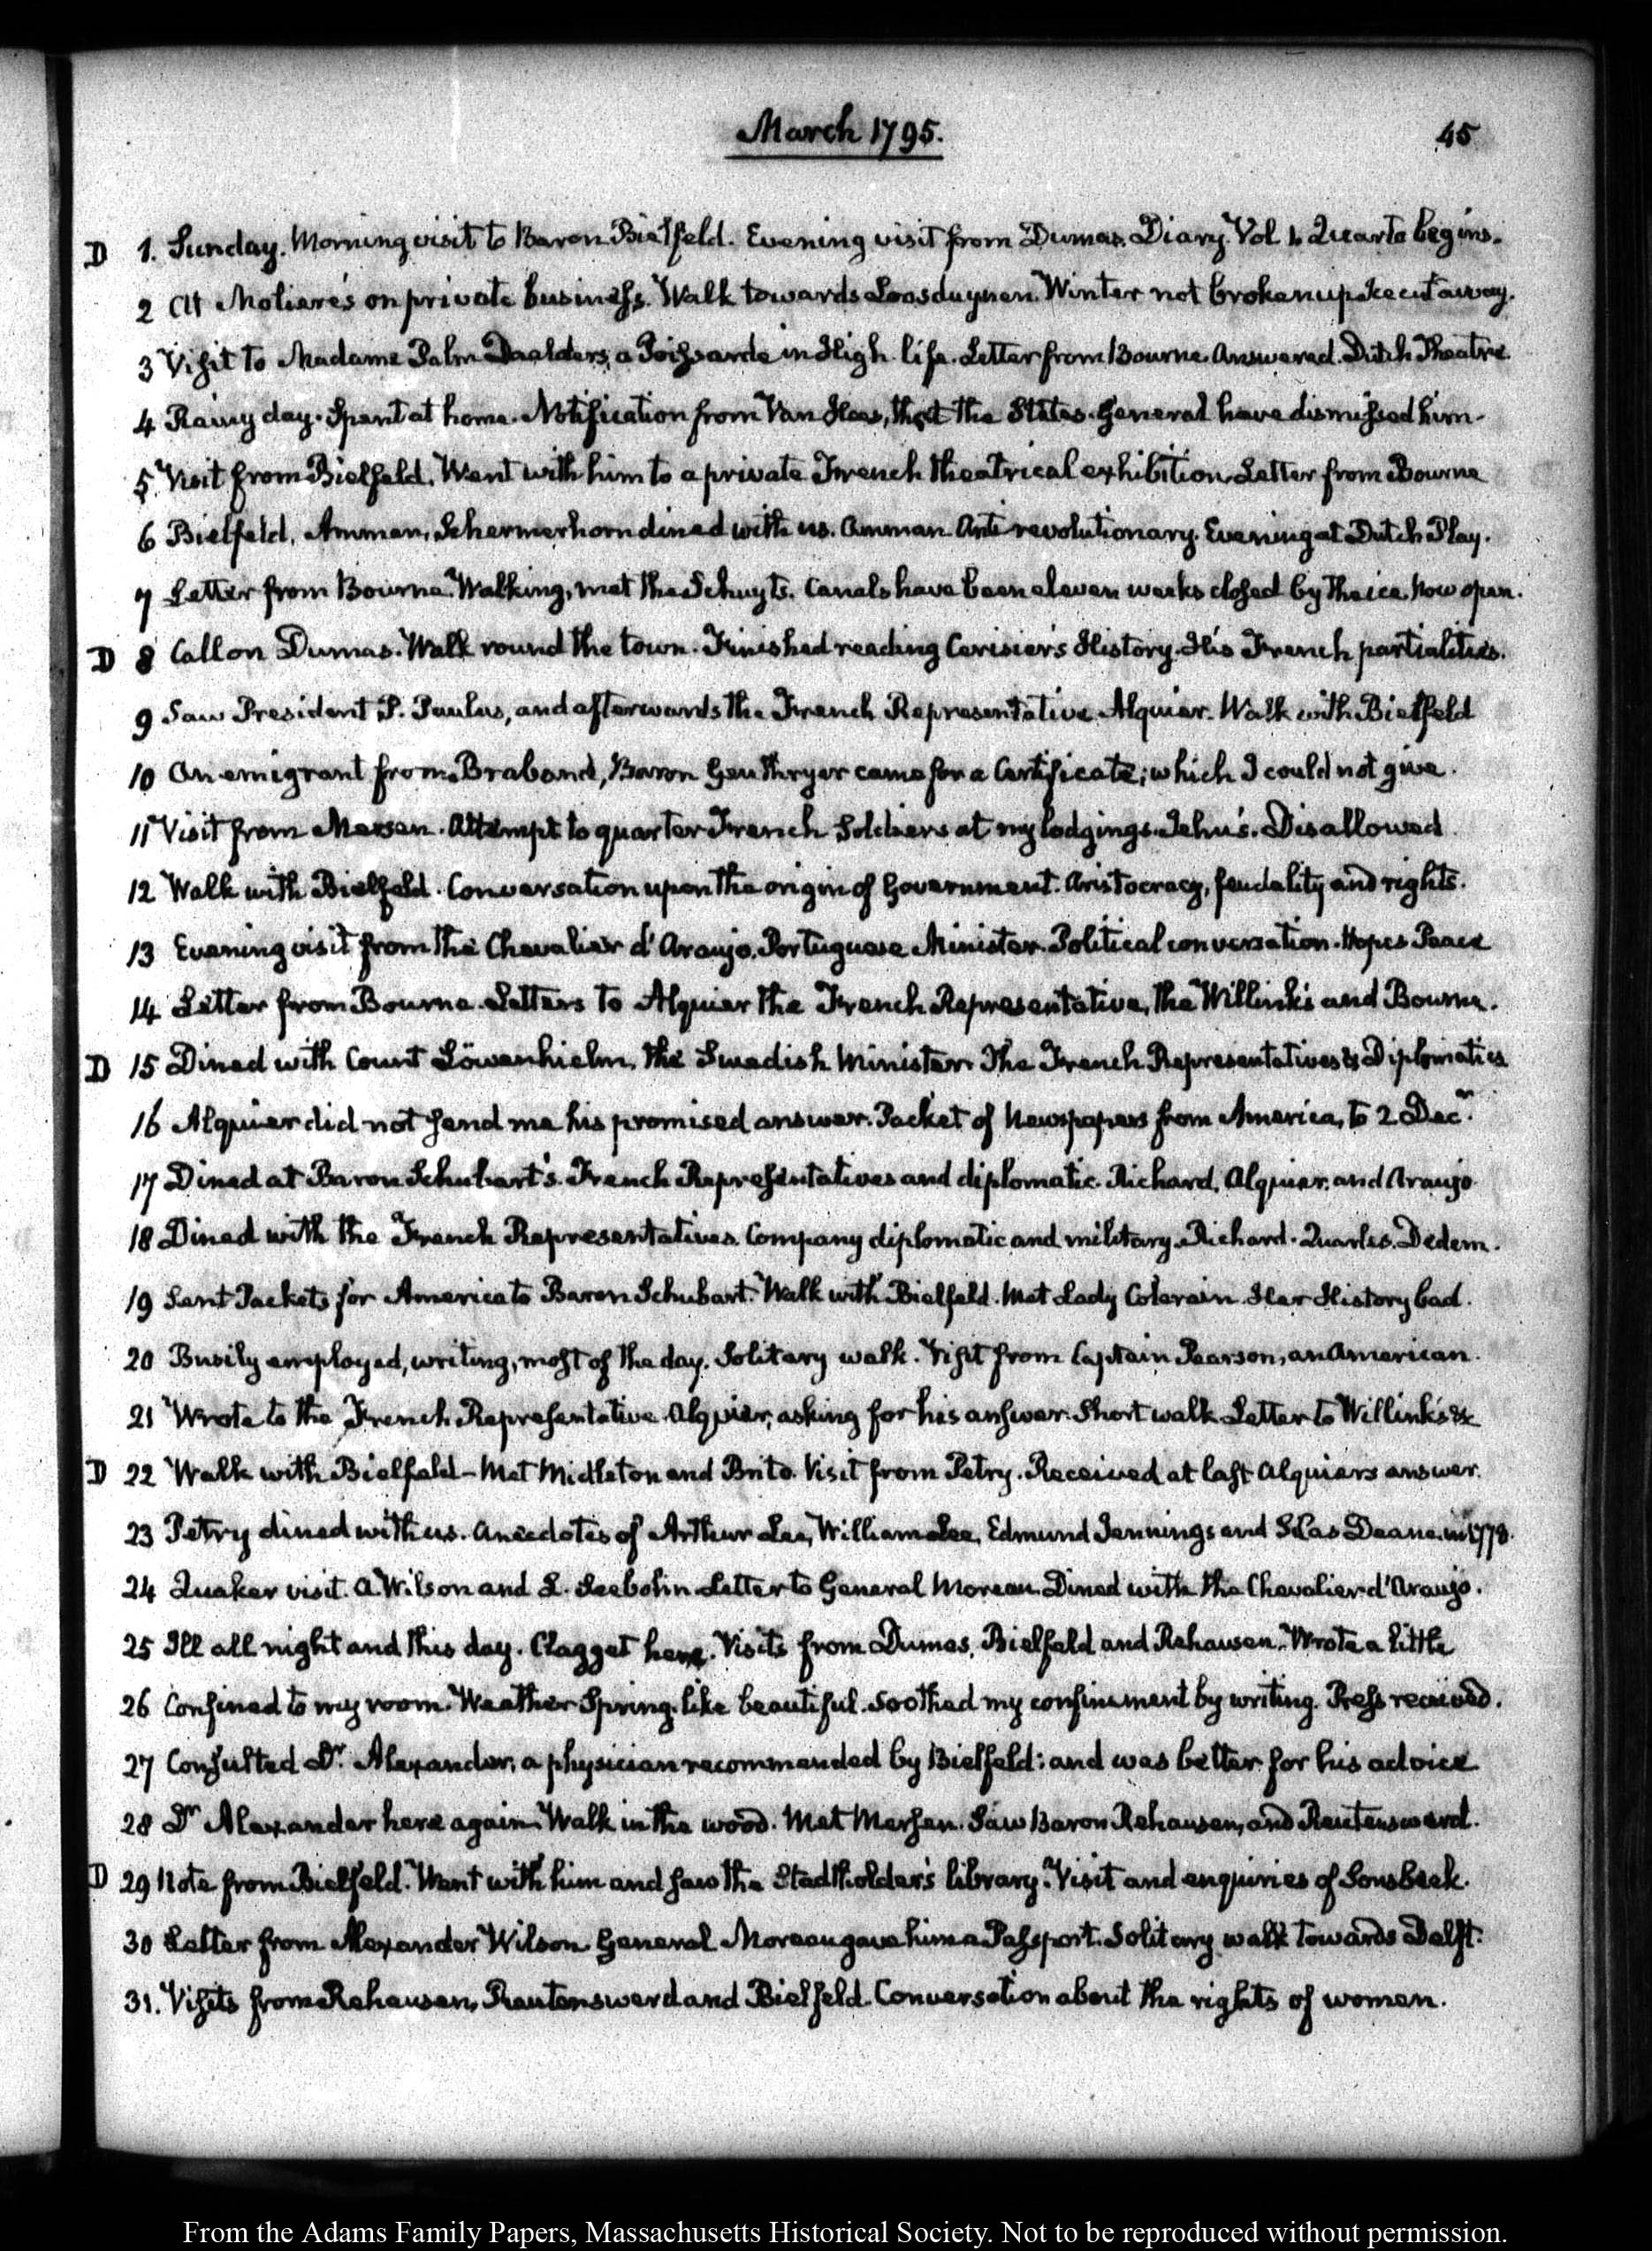 March 1795.
45
D 1. Sunday. Morning visit to Baron Bielfeld. Evening visit from Dumas. Diary. Vol 1. Quarto begins.
2 At Moliere's on private business. Walk towards Loosduynen. Winter not broken up. Ice cut away.
3 Visit to Madame Palm Daelders, a Poissarde in High life. Letter from Bourne. Answered. Dutch Theatre
4 Rainy day. Spent at home. Notification from Van Hees, that the States-General have dismissed him.
5. Visit from Bielfeld. Went with him to a private French theatrical exhibition. Letter from Bourne
6 Bielfeld, Amman, Schermerhorn dined with us. Amman. Anti revolutionary. Evening at Dutch Play.
7 Letter from Bourne. Walking, met the Schuyts. Canals have been eleven weeks closed by the ice. Now open.
D 8 Call on Dumas. Walk round the town. Finished reading Cerisier's History. His French partialities.
9 Saw President P. Paulus, and afterwards the French Representative Alquier. Walk with Bielfeld
10 An emigrant from Braband, Baron came for a Certificate; which I could not give.
11 Visit from Mersen. Attempt to quarter French Soldiers at my lodgings. Jehu's. Disallowed.
12 Walk with Bielfeld. Conversation upon the origin of Government. Aristocracy, feudality and rights.
13 Evening visit from the Chevalier d'Araujo. Portuguese Minister. Political conversation. Hopes Peace
14 Letter from Bourne. Letters to Alquier the French Representative, the Willink's and Bourne.
D 15 Dined with Count Löwenhielm, the Swedish Minister. The French Representatives & Diplomatics
16 Alquier did not send me his promised answer. Packet of Newspapers from America, to 2 Decr.
17 Dined at Baron Schubart's. French Representatives and diplomatic. Richard, Alquier, and Araujo
18 Dined with the French Representatives. Company diplomatic and military. Richard. Quarles. Dedem.
19 Sent Packets for America to Baron Schubart. Walk with Bielfeld. Met Lady Colerain. Her History bad.
20 Busily employed, writing, most of the day. Solitary walk. Visit from Captain Pearson, an American.
21 Wrote to the French Representative Alquier, asking for his answer. Short walk. Letter to Willink's &c
D 22 Walk with Bielfeld - Met Midleton and Brito. Visit from Petry. Received at last Alquiers answer.
23 Petry dined with us. Anecdotes of Arthur Lee, William Lee, Edmund Jennings and Silas Deane. in 1778.
24 Quaker visit. A Wilson and L. Seebohn. Letter to General Moreau. Dined with the Chevalier d'Araujo.
25 Ill all night and this day. Clagget here. Visits from Dumas, Bielfeld and Rehausen. Wrote a little
26 Confined to my room. Weather Spring-like beautiful. Soothed my confinement by writing. Press received.
27 Consulted Dr. Alexander, a physician recommended by Bielfeld: and was better for his advice
28 Dr Alexander here again. Walk in the wood. Met Mersen. Saw Baron Rehausen, and Reutensward.
D 29 Note from Bielfeld. Went with him and saw the Stadtholder's library. Visit and enquiries of Sonsbeek.
30 Letter from Alexander Wilson. General Moreau gave him a Passport. Solitary walk towards Delft.
31. Visits from Rehausen, Reutensward and Bielfeld. Conversation about the rights of women.
From the Adams Family Papers, Massachusetts Historical Society. Not to be reproduced without permission.